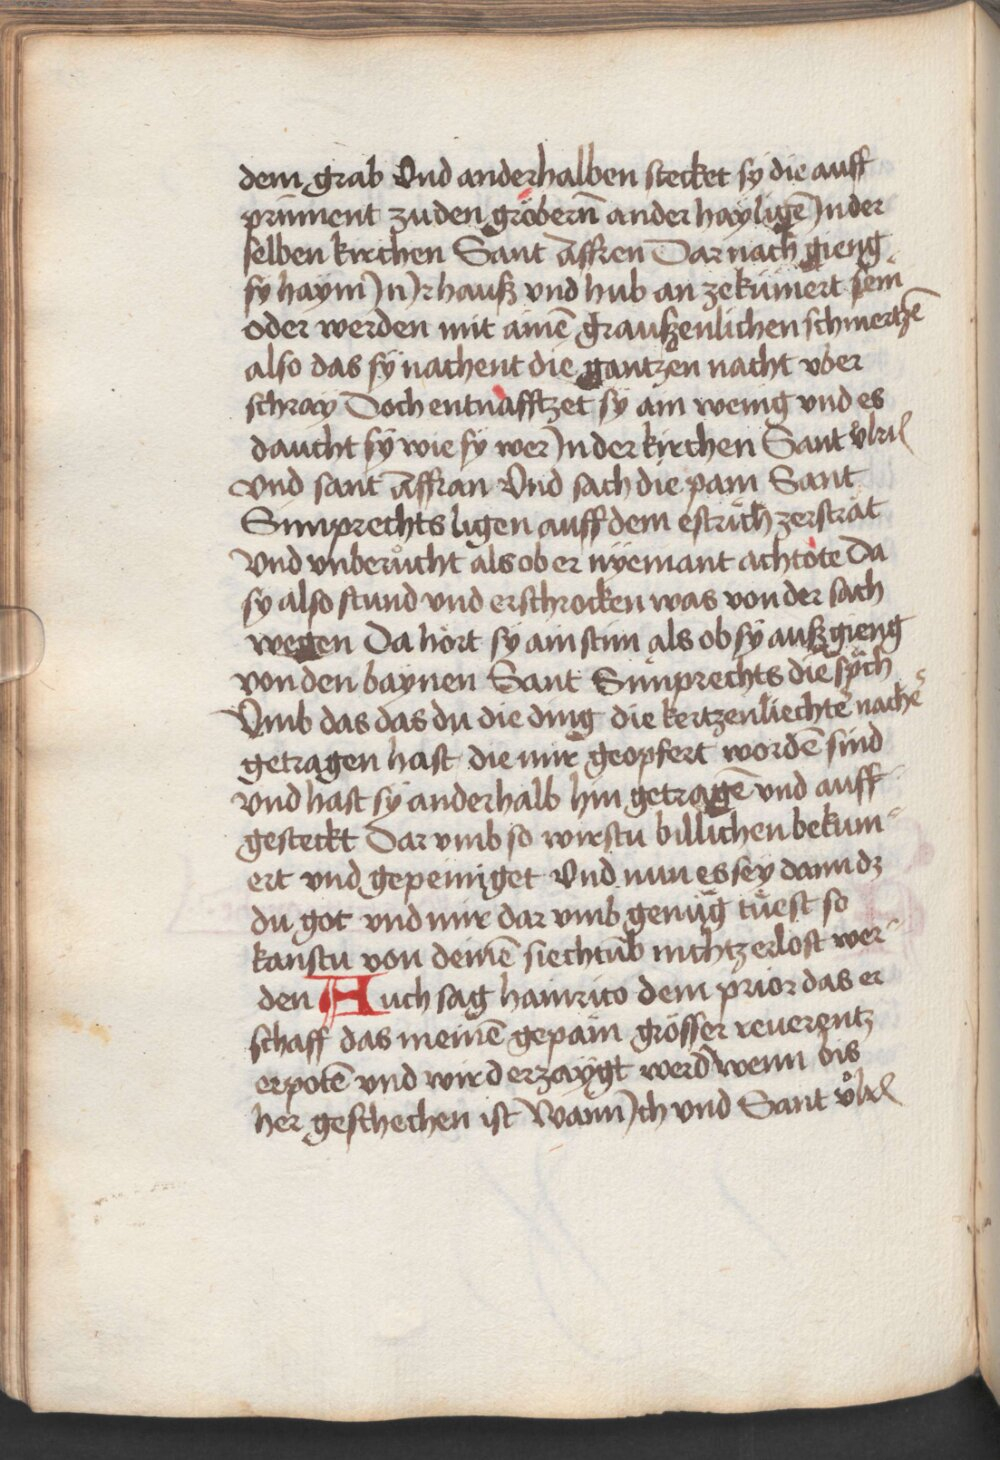 dem grab Vnd anderhalben stecket sÿ die auff
prinnent zu den gröbern̄ ander haylige͂ Jn der
selben kirchen Sant Affren Dar nach gieng
sy haÿm Jn Jr hauß vnd hub an zekumert sein
oder werden mit aine͂ graußenlichen schmertze͂
also das sÿ nachent die gantzen nacht vber
schray Doch entnafftzet sÿ ain wenig vnd es
daucht sÿ wie sÿ wer Jn der kirchen Sant vͦlril
vnd sant affran Vnd sach die pain Sant
Simprechts ligen auff dem estrich zersträt
Vnd vnberuͦcht als ob er nÿemant achtote Da
sy also stund vnd erschrocken was von der sach
wegen Da hört sÿ ain stim als ob sÿ auß gieng
von den baÿnen Sant Simprechts die sprich
Vmb das das du die ding die kertzenliechter nache͂
getragen hast die mir geopfert worde͂ sind
vnd hast sÿ anderhalb hin getrage͂ vnd auff
gesteckt Dar vmb so wirstu billichen bekum
ert vnd gepeiniget Vnd nun es sey dann dz
du got vnd mir dar vmb genüg tüest so
kanstu von deine͂ siechtu͂b nichtz erlost wer
den Auch sag hainrico dem prior das er
schaff das meine͂ gepain grösser reuerentz
erpote͂ vnd wird erzaÿgt werd wenn bis
her geschechen ist Wann Jch vnd Sant vͦlrl